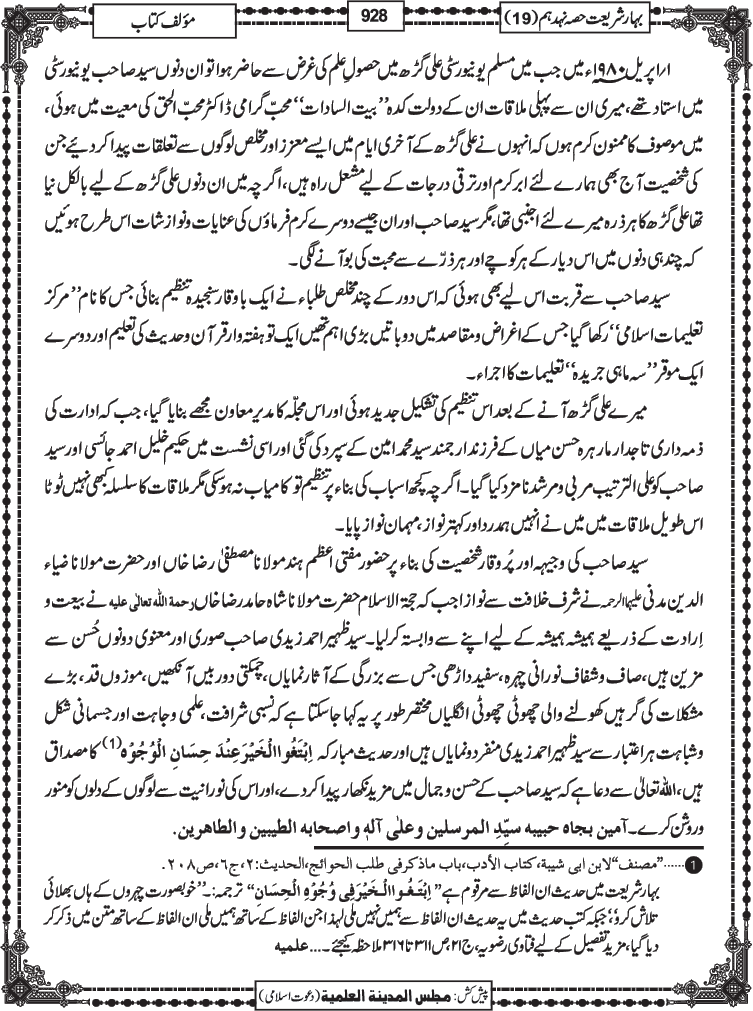 بہارِ شریعت حصہ نہدہم (19)
928
مؤلف کتاب
ار اپریل ۱۹۸۰ء میں جب میں مسلم یونیورسٹی علی گڑھ میں حصولِ علم کی غرض سے حاضر ہوا تو ان دنوں سید صاحب یونیورسٹی
میں استاد تھے، میری ان سے پہلی ملاقات ان کے دولت کدہ ’’بیت السادات‘‘ محبّ گرامی ڈاکٹر محبّ الحق کی معیت میں ہوئی،
میں موصوف کا ممنونِ کرم ہوں کہ انہوں نے علی گڑھ کے آخری ایام میں ایسے معزز اور مخلص لوگوں سے تعلقات پیدا کر دیئے جن
کی شخصیت آج بھی ہمارے لئے ابرِ کرم اور ترقی درجات کے لیے مشعلِ راہ ہیں، اگرچہ میں ان دنوں علی گڑھ کے لیے بالکل نیا
تھا علی گڑھ کا ہر ذرہ میرے لئے اجنبی تھا، مگر سید صاحب اور ان جیسے دوسرے کرم فرماؤں کی عنایات و نوازشات اس طرح ہوئیں
کہ چند ہی دنوں میں اس دیار کے ہر کوچے اور ہر ذرّے سے محبت کی بو آنے لگی۔
سید صاحب سے قربت اس لیے بھی ہوئی کہ اس دور کے چند مخلص طلباء نے ایک باوقار سنجیدہ تنظیم بنائی جس کا نام ’’مرکز
تعلیمات اسلامی‘‘ رکھا گیا جس کے اغراض و مقاصد میں دو باتیں بڑی اہم تھیں ایک تو ہفتہ وار قرآن و حدیث کی تعلیم اور دوسرے
ایک موقر ’’سہ ماہی جریدہ‘‘ تعلیمات کا اجراء۔
میرے علی گڑھ آنے کے بعد اس تنظیم کی تشکیل جدید ہوئی اور اس مجلّہ کا مدیر معاون مجھے بنایا گیا، جب کہ ادارت کی
ذمہ داری تاجدارِ مارہرہ حسن میاں کے فرزند ارجمند سید محمد امین کے سپرد کی گئی اور اسی نشست میں حکیم خلیل احمد جائسی اور سید
صاحب کو علی الترتیب مربی و مرشد نامزد کیا گیا۔ اگرچہ کچھ اسباب کی بناء پر تنظیم تو کامیاب نہ ہو سکی مگر ملاقات کا سلسلہ کبھی نہیں ٹوٹا
اس طویل ملاقات میں میں نے انہیں ہمدرد اور کہتر نواز، مہمان نواز پایا۔
سید صاحب کی وجیہہ اور پُر وقار شخصیت کی بناء پر حضور مفتی اعظم ہند مولانا مصطفیٰ رضا خاں اور حضرت مولانا ضیاء
الدین مدنی علیہما الرحمہ نے شرف خلافت سے نوازا جب کہ حجۃ الاسلام حضرت مولانا شاہ حامد رضا خاں رحمة الله تعالى عليه نے بیعت و
اِرادت کے ذریعے ہمیشہ ہمیشہ کے لیے اپنے سے وابستہ کرلیا۔ سید ظہیر احمد زیدی صاحب صوری اور معنوی دونوں حُسن سے
مزین ہیں، صاف و شفاف نورانی چہرہ، سفید داڑھی جس سے بزرگی کے آثار نمایاں، چمکتی دور بیں آنکھیں، موزوں قد، بڑے
مشکلات کی گرہیں کھولنے والی چھوٹی چھوٹی انگلیاں مختصر طور پر یہ کہا جا سکتا ہے کہ نسبی شرافت، علمی وجاہت اور جسمانی شکل
و شباہت ہر اعتبار سے سید ظہیر احمد زیدی منفرد و نمایاں ہیں اور حدیث مبارکہ اِبْتَغُوا الْخَيْرَ عِنْدَ حِسَانِ الْوُجُوْهِ (1) کا مصداق
ہیں، اللہ تعالیٰ سے دعا ہے کہ سید صاحب کے حسن و جمال میں مزید نکھار پیدا کر دے، اور اس کی نورانیت سے لوگوں کے دلوں کو منور
و روشن کرے۔ آمين بجاه حبيبه سيِّدِ المرسلين وعلٰى آلهٖ واصحابه الطيبين والطاهرين.
1 ......’’مصنف‘‘ لابن ابى شيبة، كتاب الأدب، باب ماذكر فى طلب الحوائج، الحديث: ۲، ج۶، ص۲۰۸.
بہارِ شریعت میں حدیث ان الفاظ سے مرقوم ہے ’’اِبْتَغُوا الْخَيْرَ فِى وُجُوْهِ الْحِسَانِ‘‘ ترجمہ:۔ ’’خوبصورت چہروں کے ہاں بھلائی
تلاش کرو‘‘، جبکہ کتب حدیث میں یہ حدیث ان الفاظ سے ہمیں نہیں ملی لہذا جن الفاظ کے ساتھ ہمیں ملی ان الفاظ کے ساتھ متن میں ذکر کر
دیا گیا، مزید تفصیل کے لیے فتاوی رضویہ، ج۲۱، ص۳۱۱ تا ۳۱۶ ملاحظہ کیجئے۔...علمیه
پیش کش: مجلس المدينة العلمية (دعوت اسلامی)